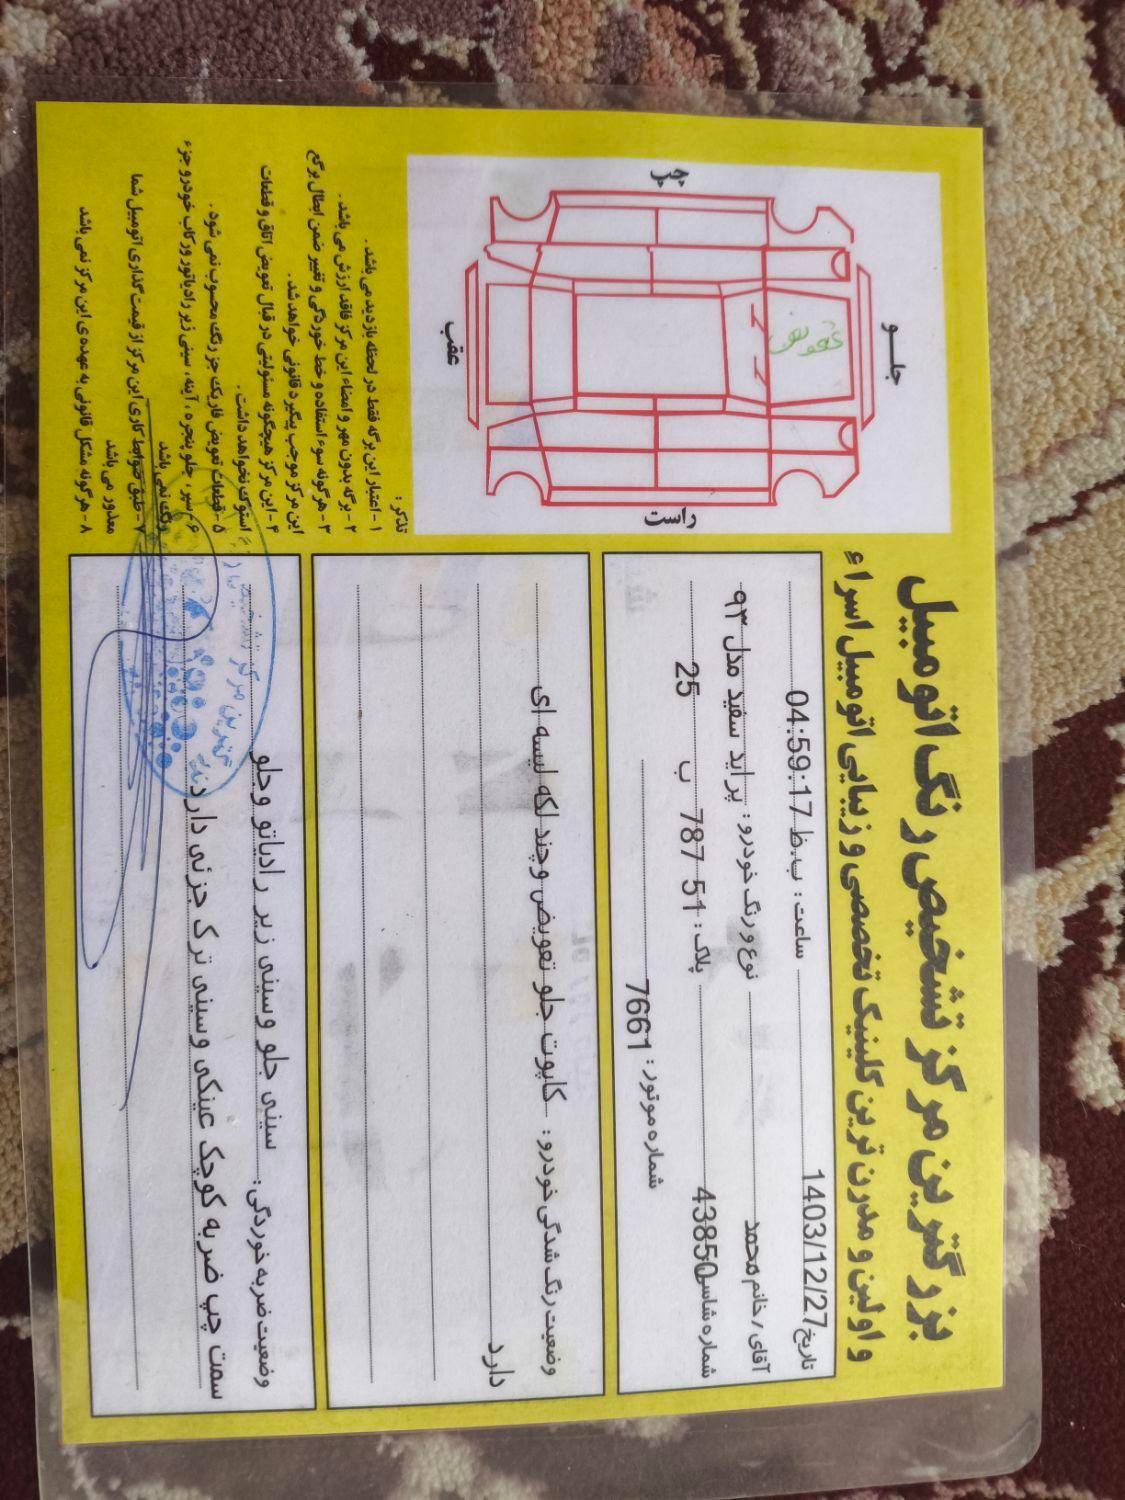 بزرگترین مرکز تشخیص رنگ اتومبیل
و اولین و مدرن ترین کلینیک تخصصی و زیبایی اتومبیل اسراء
تاریخ 1403/12/27 ساعت: ب.ظ 04:59:17
آقای / خانم محمد نوع و رنگ خودرو: پراید سفید مدل ۹۳
شماره شاسی 43850 پلاک: 51 787 ب 25
شماره موتور: 7661
وضعیت رنگ شدگی خودرو: کاپوت جلو تعویض وچند لکه لیسه ای
دارد
وضعیت ضربه خوردگی: سینی جلو وسینی زیر رادیاتو وجلو
سمت چپ ضربه کوچک عینکی وسینی ترک جزئی دارد
چپ
جلـــو
تعویض
عقب
راست
تذکر:
۱- اعتبار این برگه فقط در لحظه بازدید می باشد.
۲- برگه بدون مهر و امضاء این مرکز فاقد ارزش می باشد.
۳- هر گونه سوء استفاده و خط خوردگی و تغییر ضمن ابطال برگه
این مرکز موجب پیگیرد قانونی خواهد شد.
۴- این مرکز هیچگونه مسئولیتی در قبال تعویض اتاق و قطعات
استوک نخواهد داشت.
۵- قطعات تعویض فابریک جز رنگ محسوب نمی شود.
۶- سپر، جلو پنجره، آینه، سینی زیر رادیاتور ورکاب خودرو جزء
رنگ نمی باشد
۷- طبق ضوابط کاری این مرکز از قیمت گذاری اتومبیل شما
معذور می باشد
۸- هر گونه مشکل قانونی به عهده ی این مرکز نمی باشد